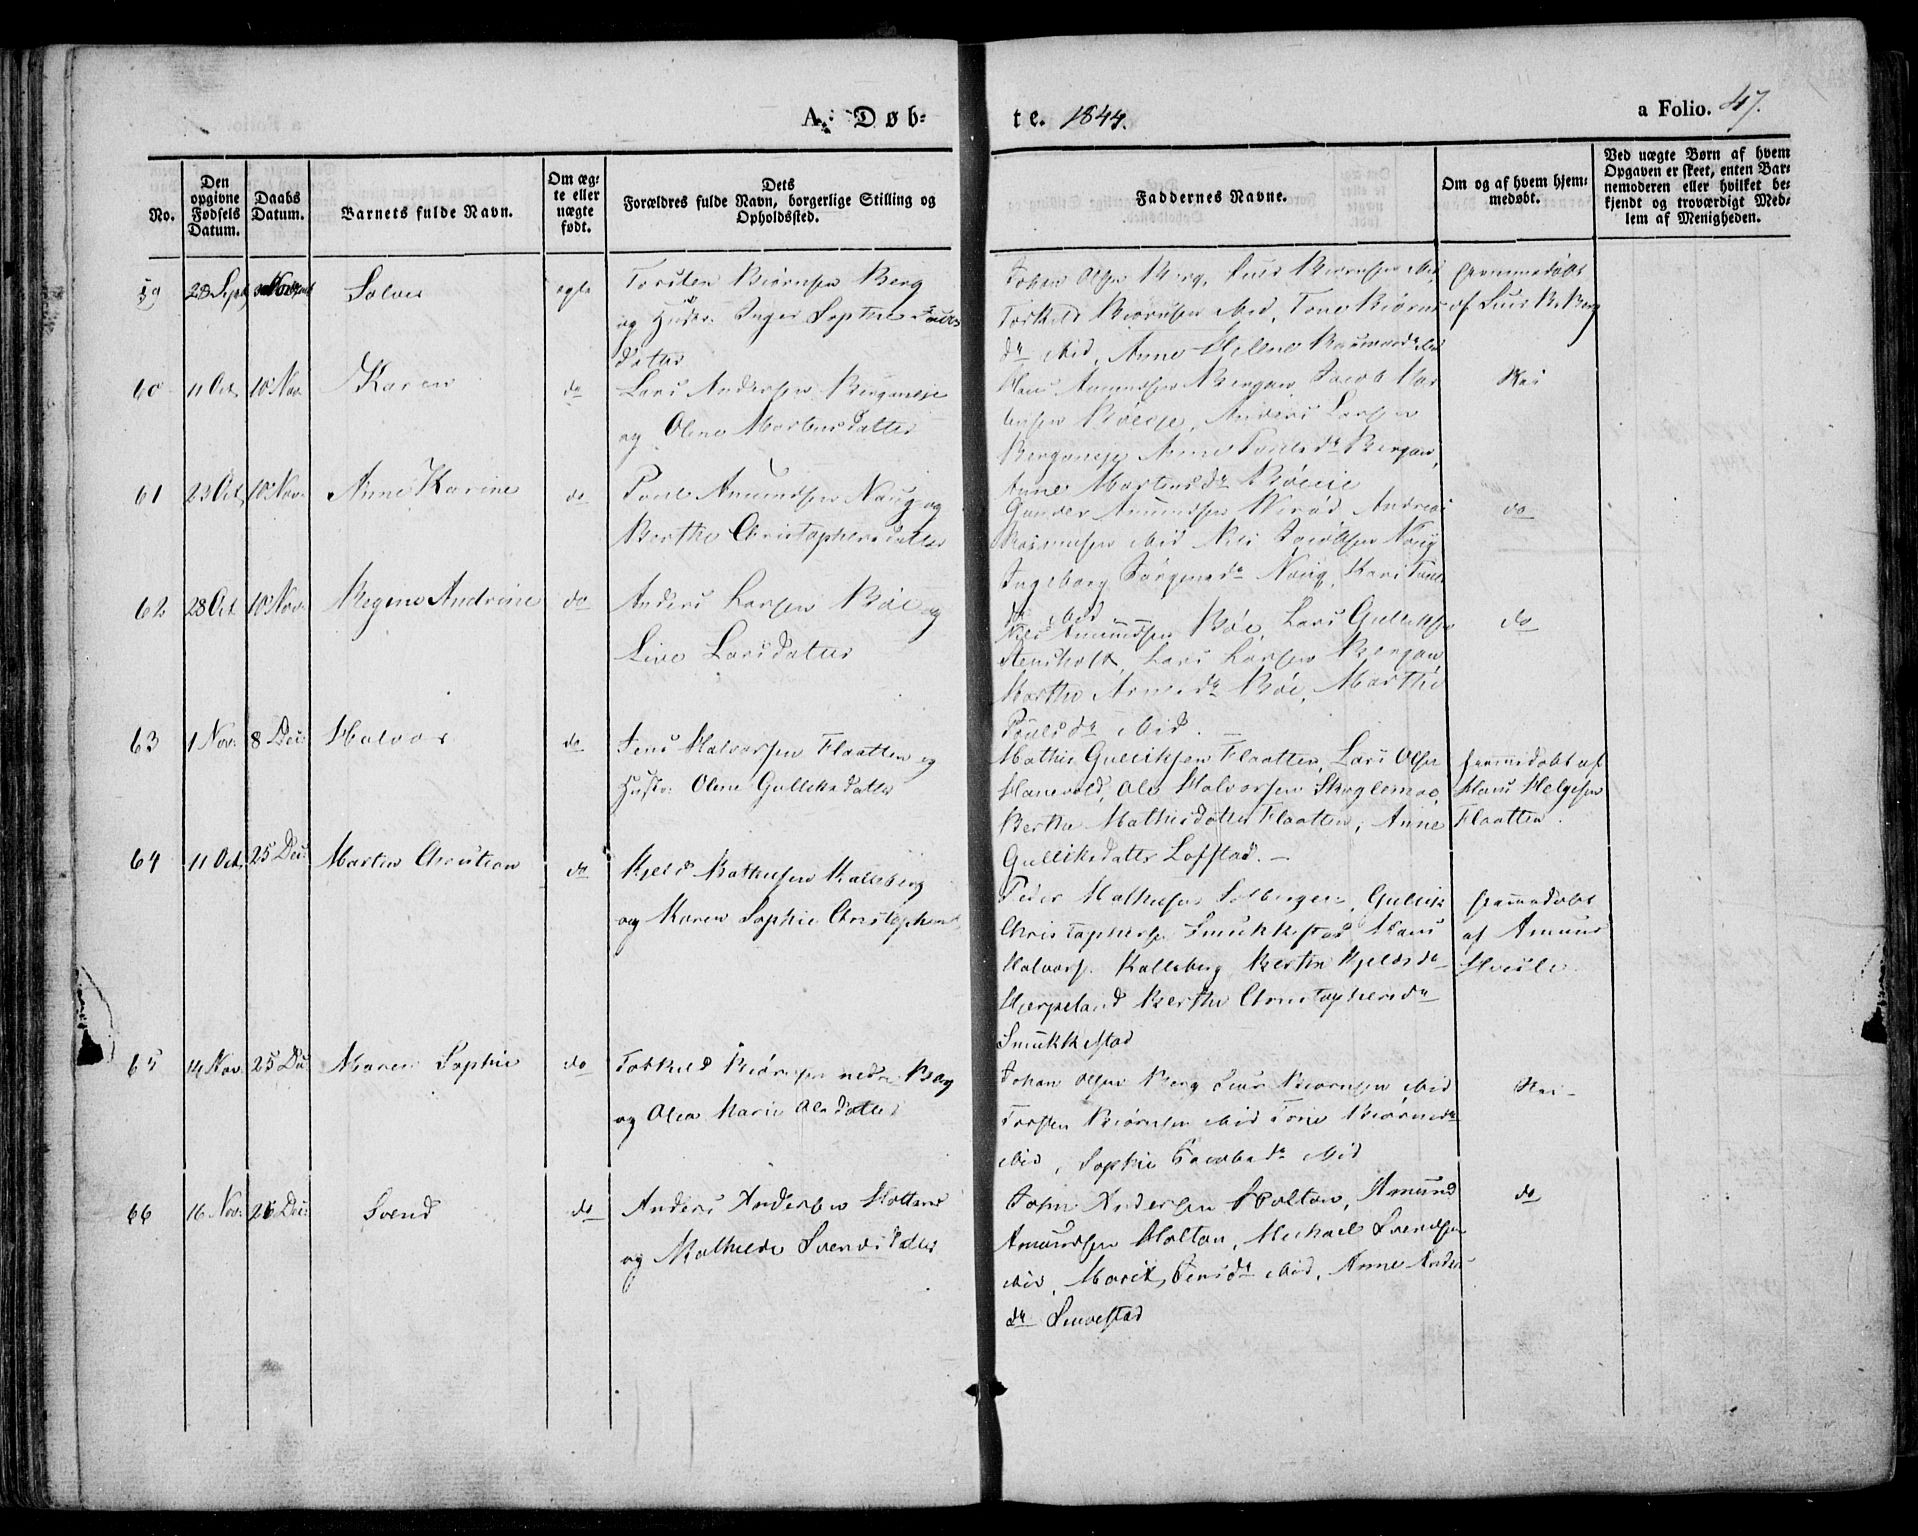 A. Døb-
te. 1844.
a Folio. 47.
No.
Den opgivne Fødsels Datum.
Daabs Datum.
Barnets fulde Navn.
Om ægte eller uægte født.
Dets Forældres fulde Navn, borgerlige Stilling og Opholdssted.
Faddernes Navne.
Om og af hvem hjemmedøbt.
Ved uægte Børn af hvem Opgaven er skeet, enten Barnemoderen eller hvilket bekjendt og troværdigt Medlem af Menigheden.
59
28 Sept
ægte
Torsten Biørnsen Berg
og Hustr. Inger Sophie
datter
Johan Olsen Berg, Biørnsen ibid,
Torkild Biørnsen ibid, Tone Biørns
dr ibid, Anne Helene
hjemmedøbt
af B. Berg
60
11 Oct.
10 Nov.
Karen
do
Lars Andersen Berganeje
og Olene Martinsdatter
Hans Amundsen Bergan, Jacob
Bøeeje, Anders Larsen
Berganeje Anne Bergan,
Anne Martinsdr Bøeeie
Nei
61
23 Oct.
10 Nov.
Anne Karine
do
Poul Amundsen Naug og
Berthe Christophersdatter
Gunder Amundsen Andreas
Rasmusen ibid Nils Jacobsen Naug
Ingeborg Naug, Kari Pouls
dr ibid
do
62
28 Oct.
10 Nov.
Regine Andrine
do
Anders Larsen Bøe og
Live Larsdatter
Nils Amundsen Bøe, Lars Gulliksen
Stensholt, Lars Larsen Bergan,
Marthe Bøe, Marthe
Poulsdr ibid.
do
63
1 Nov.
8 Dec.
Halvor
do
Jens Halvorsen Flaatten og
Hustr. Olene Gulliksdatter
Mathis Gulliksen Flaatten, Lars Olsen
Hanevold, Ole Halvorsen Skoglemoe,
Berthe Mathisdatter Flaatten, Anne
Gulliksdatter Lofstad. —
hjemmedøbt af
Hans Helgesen
Flaatten.
64
11 Oct.
25 Dec.
Martin Christian
do
Kjeld Mathisen Kalleberg
og Karen Sophie Christophers
Peder Mathisen Solberg, Gullik
Christophersen Smukkestad Hans
Halvors. Kalleberg Berthe Kjeldsdr
Hjerpeland Berthe Christophersdr
Smukkestad
hjemmedøbt
af Amund
65
14 Nov.
25 Dec.
Maren Sophie
do
Torkild Biørnsen nedre Berg
og Olea Marie Olsdatter
Johan Olsen Berg Biørnsen ibid
Torsten Biørnsen ibid Tone Biørnsdr
ibid, Sophie Jacobsdr ibid
Nei
66
16 Nov.
26 Dec.
Svend
do
Anders Andersen
og Mathilde Svendsdatter
John Andersen Holtan, Amund
Amundsen Holtan, Michael Svendsen
ibid, Marit Jensdr ibid, Anne Anders
dr
do